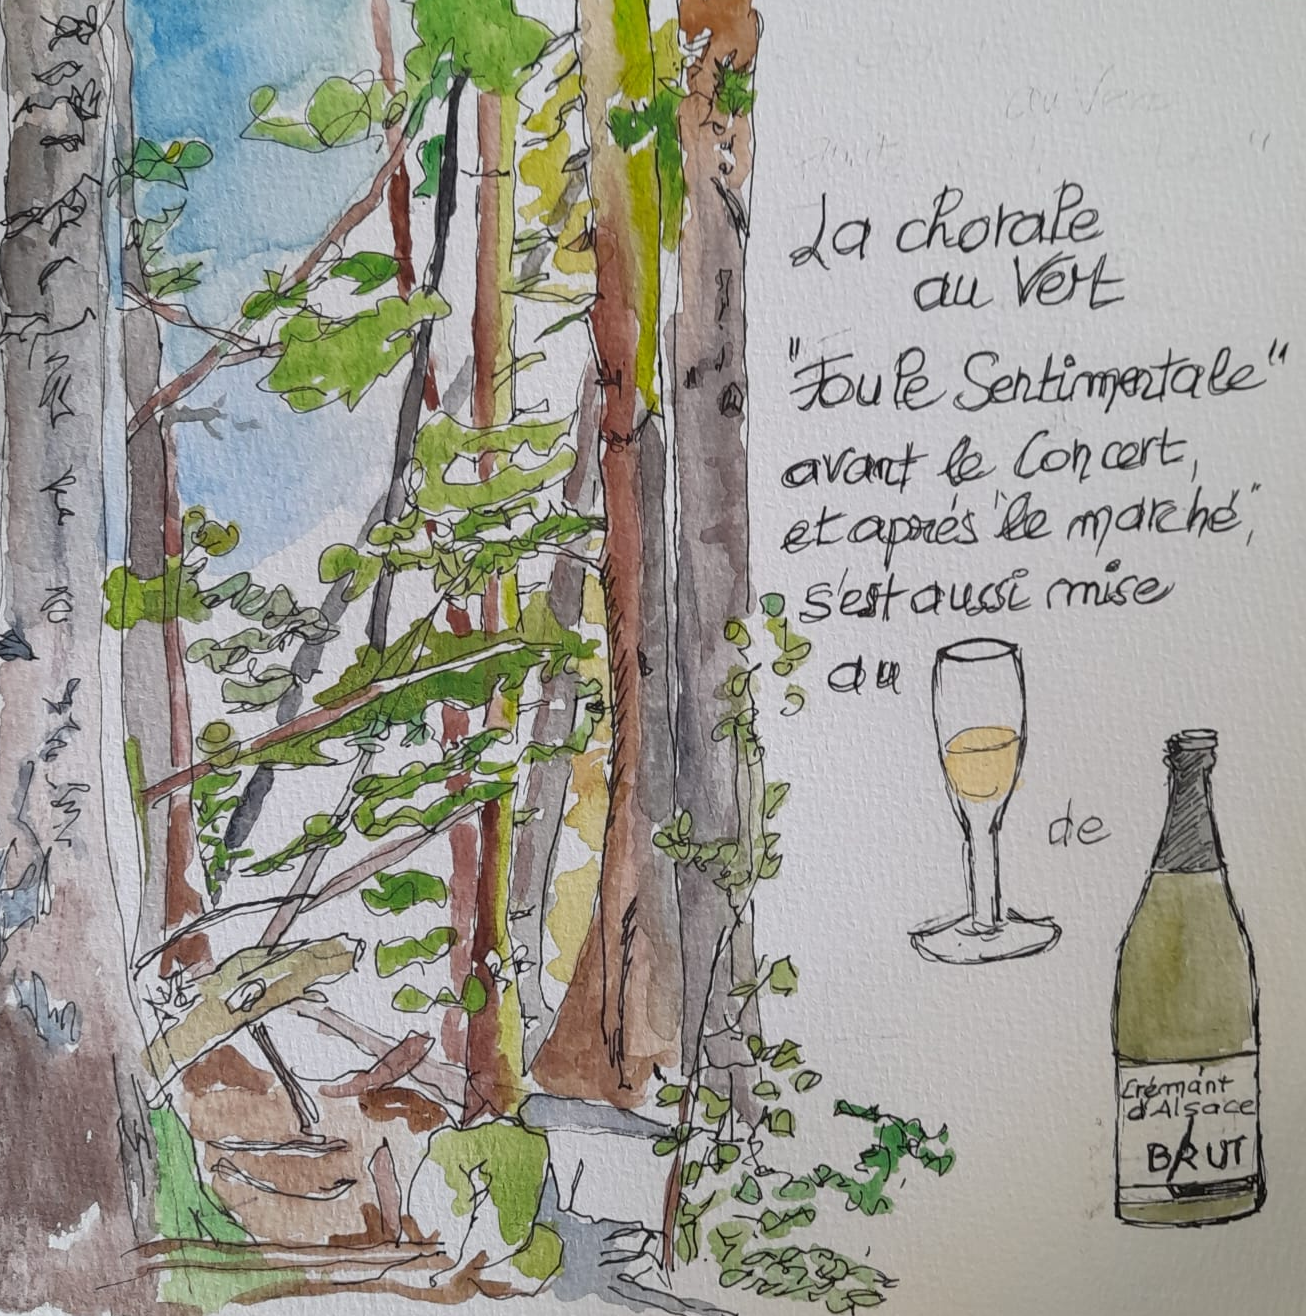 La chorale
au Vert
"Foule Sentimentale"
avant le Concert,
et aprés "le marché",
s'est aussi mise
au
de
Crémant
d'Alsace
BRUT